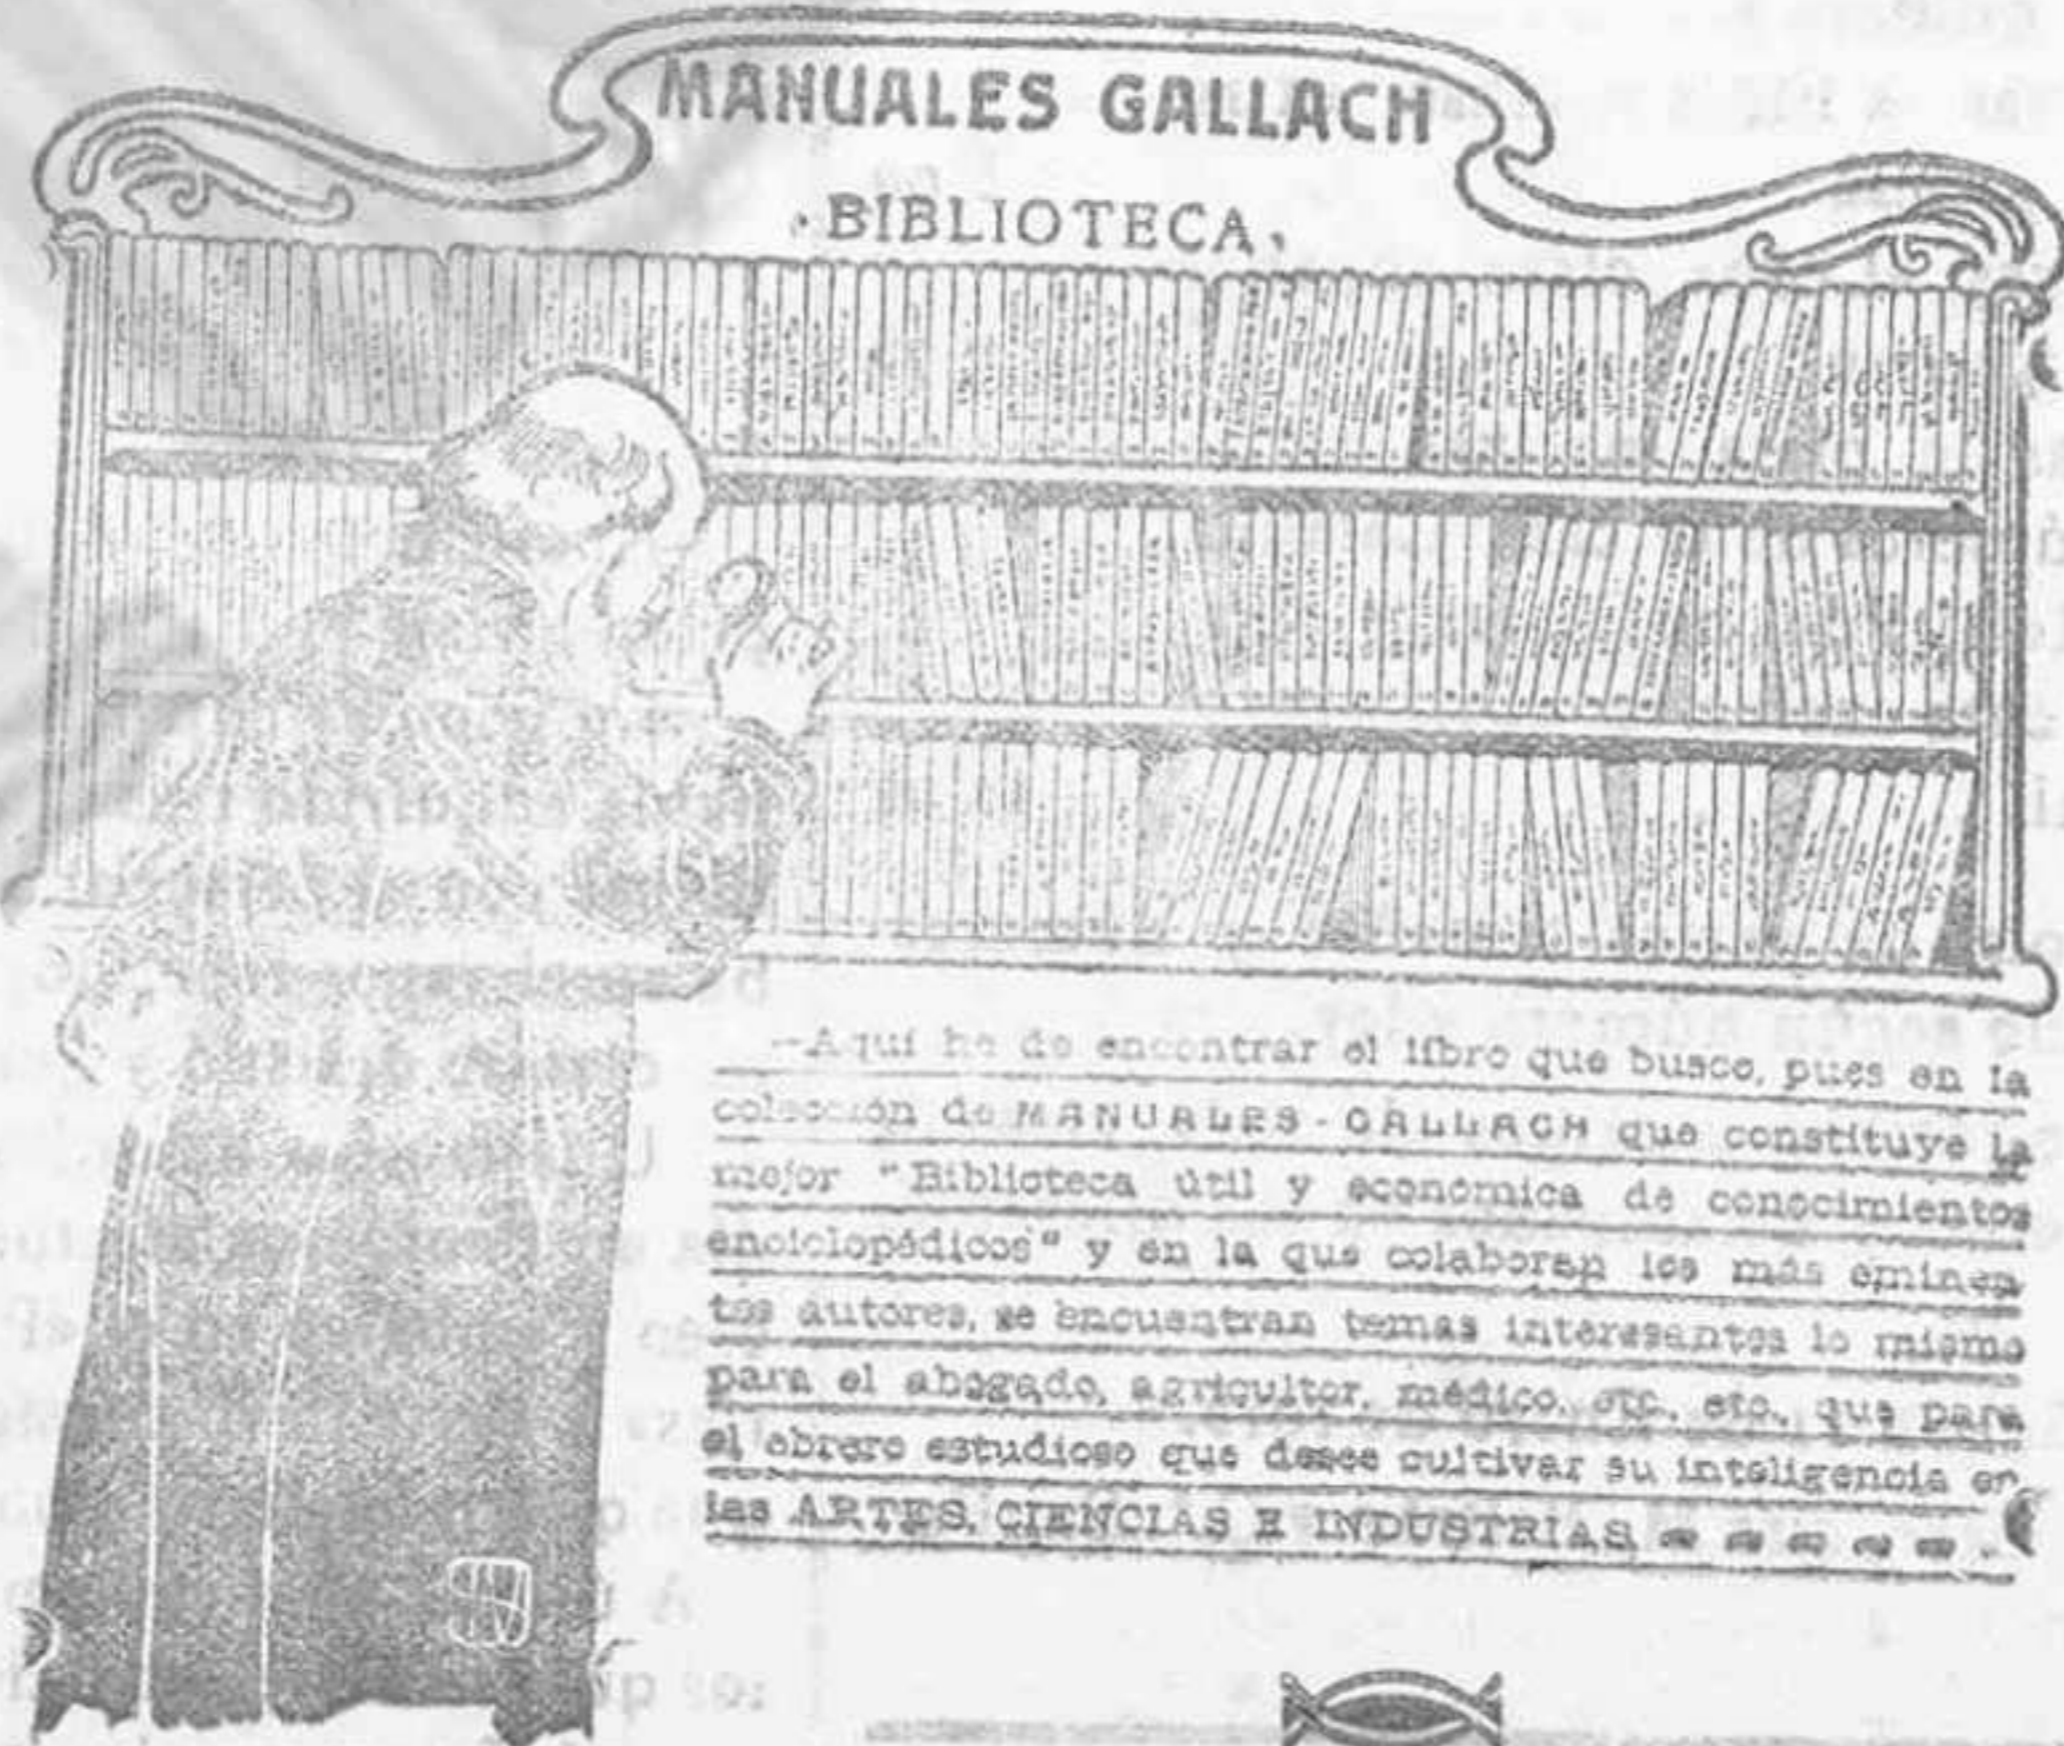 MANUALES GALLACH
·BIBLIOTECA·
—Aquí he de encontrar el libro que busco, pues en la
colección de MANUALES-GALLACH que constituye la
mejor "Biblioteca útil y económica de conocimientos
enciclopédicos" y en la que colaboran los más eminen
tes autores, se encuentran temas interesantes lo mismo
para el abogado, agricultor, médico, etc., etc., que para
el obrero estudioso que desee cultivar su inteligencia en
las ARTES, CIENCIAS E INDUSTRIAS